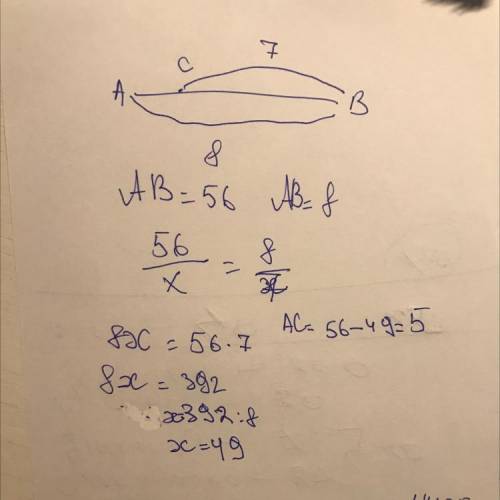 7
C
A B
8
AB = 56 AB = 8
56/x = 8/7
8x = 56 · 7 AC = 56 - 49 = 5
8x = 392
x = 392 : 8
x = 49